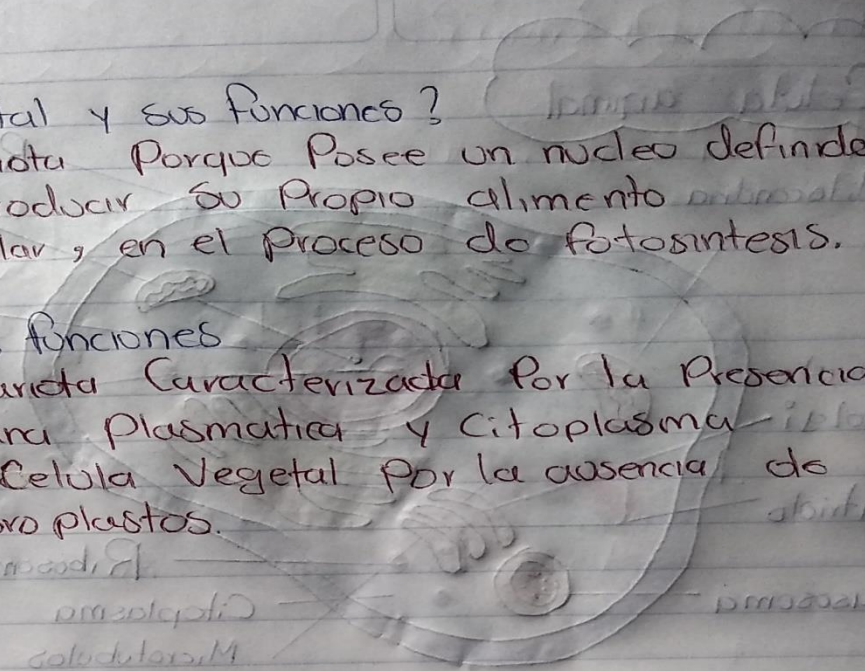 tal y sus funciones?
iota Porque Posee un nucleo definido
oducir su Propio alimento
lar, en el Proceso de fotosintesis.
funciones
ariota Caracterizada Por la Presencia
na plasmatica y Citoplasma
Celula Vegetal por la ausencia de
oroplastos.
Ribosom
Citoplasma
Microtubulos